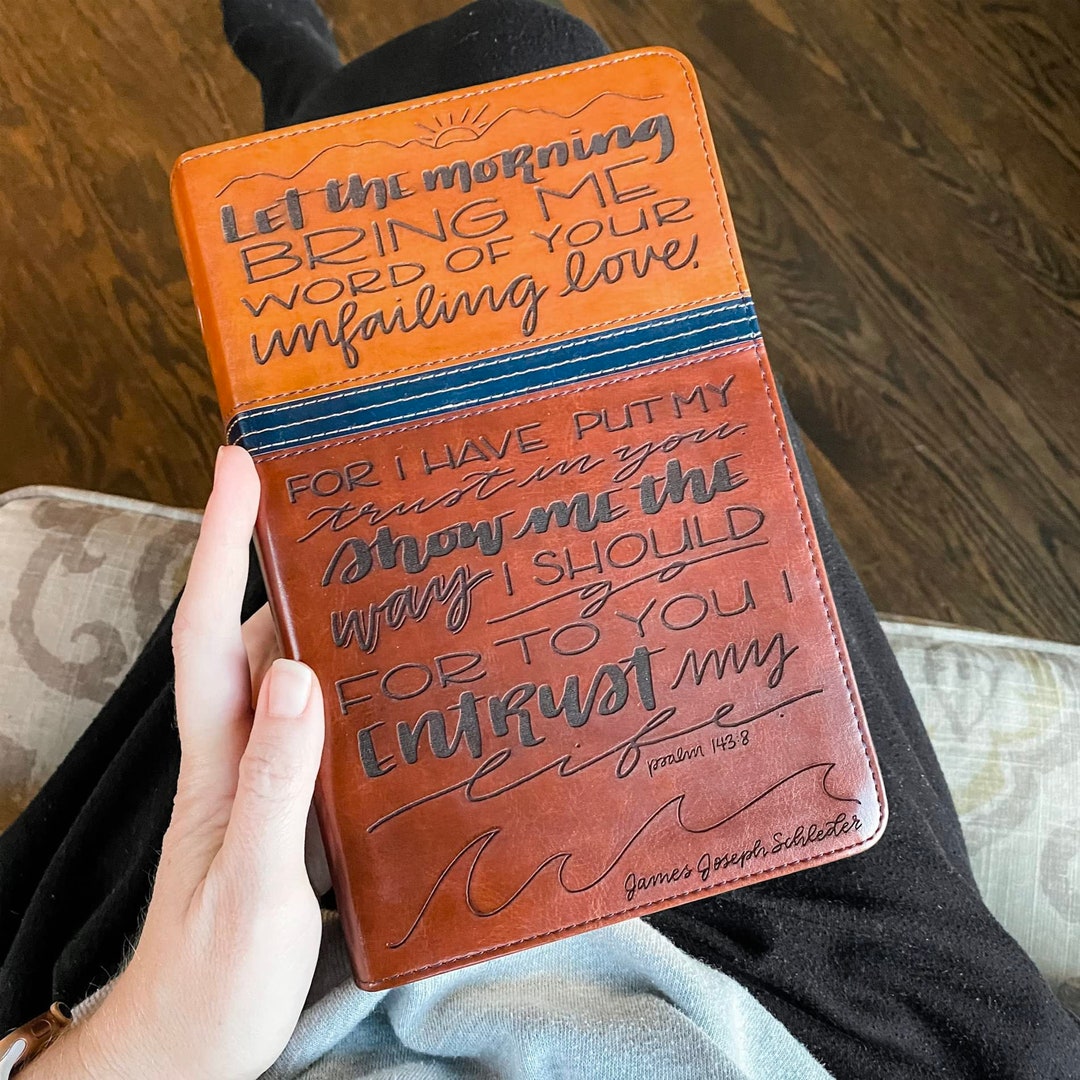 Let the morning
BRING ME
WORD OF YOUR
unfailing love,
FOR I HAVE PUT MY
trust in you.
Show me the
way I SHOULD
go
FOR TO YOU I
Entrust my
life.
psalm 143:8
James Joseph Schleder